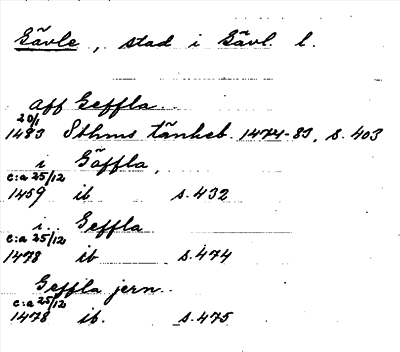 Gävle, stad i Gävl. l.
aff Geffla..
20/1
1483 Sthms tänkeb. 1474-83, s. 403
i Gäffla,
c:a 25/12
1459 ib s. 432
i.. Geffla
c:a 25/12
1478 ib s. 474
Geffla jern..
c:a 25/12
1478 ib. s. 475